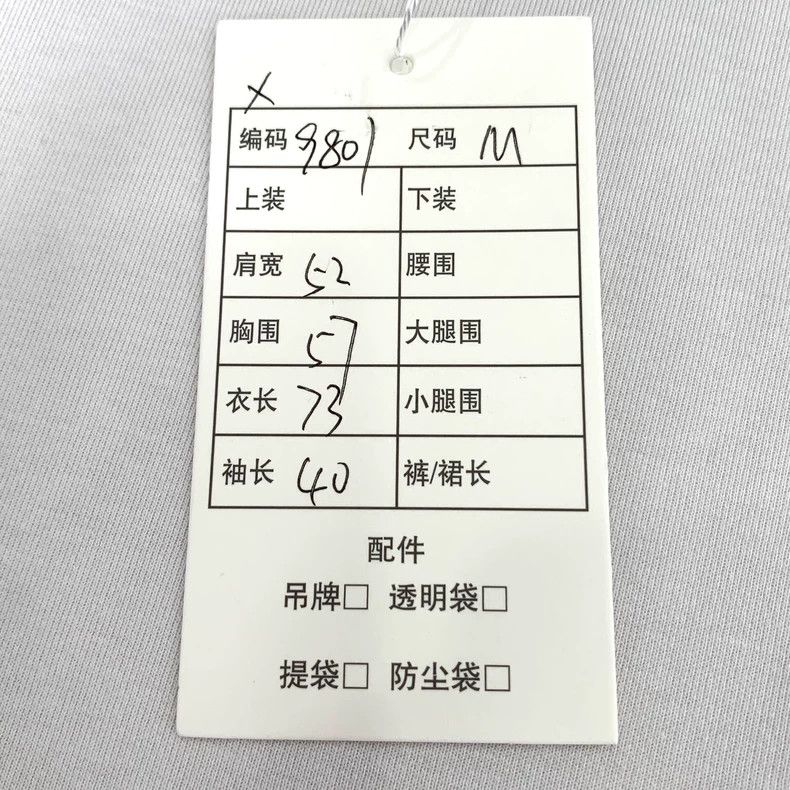 X
编码 9801 尺码 M
上装 下装
肩宽 52 腰围
胸围 57 大腿围
衣长 73 小腿围
袖长 40 裤/裙长
配件
吊牌□ 透明袋□
提袋□ 防尘袋□